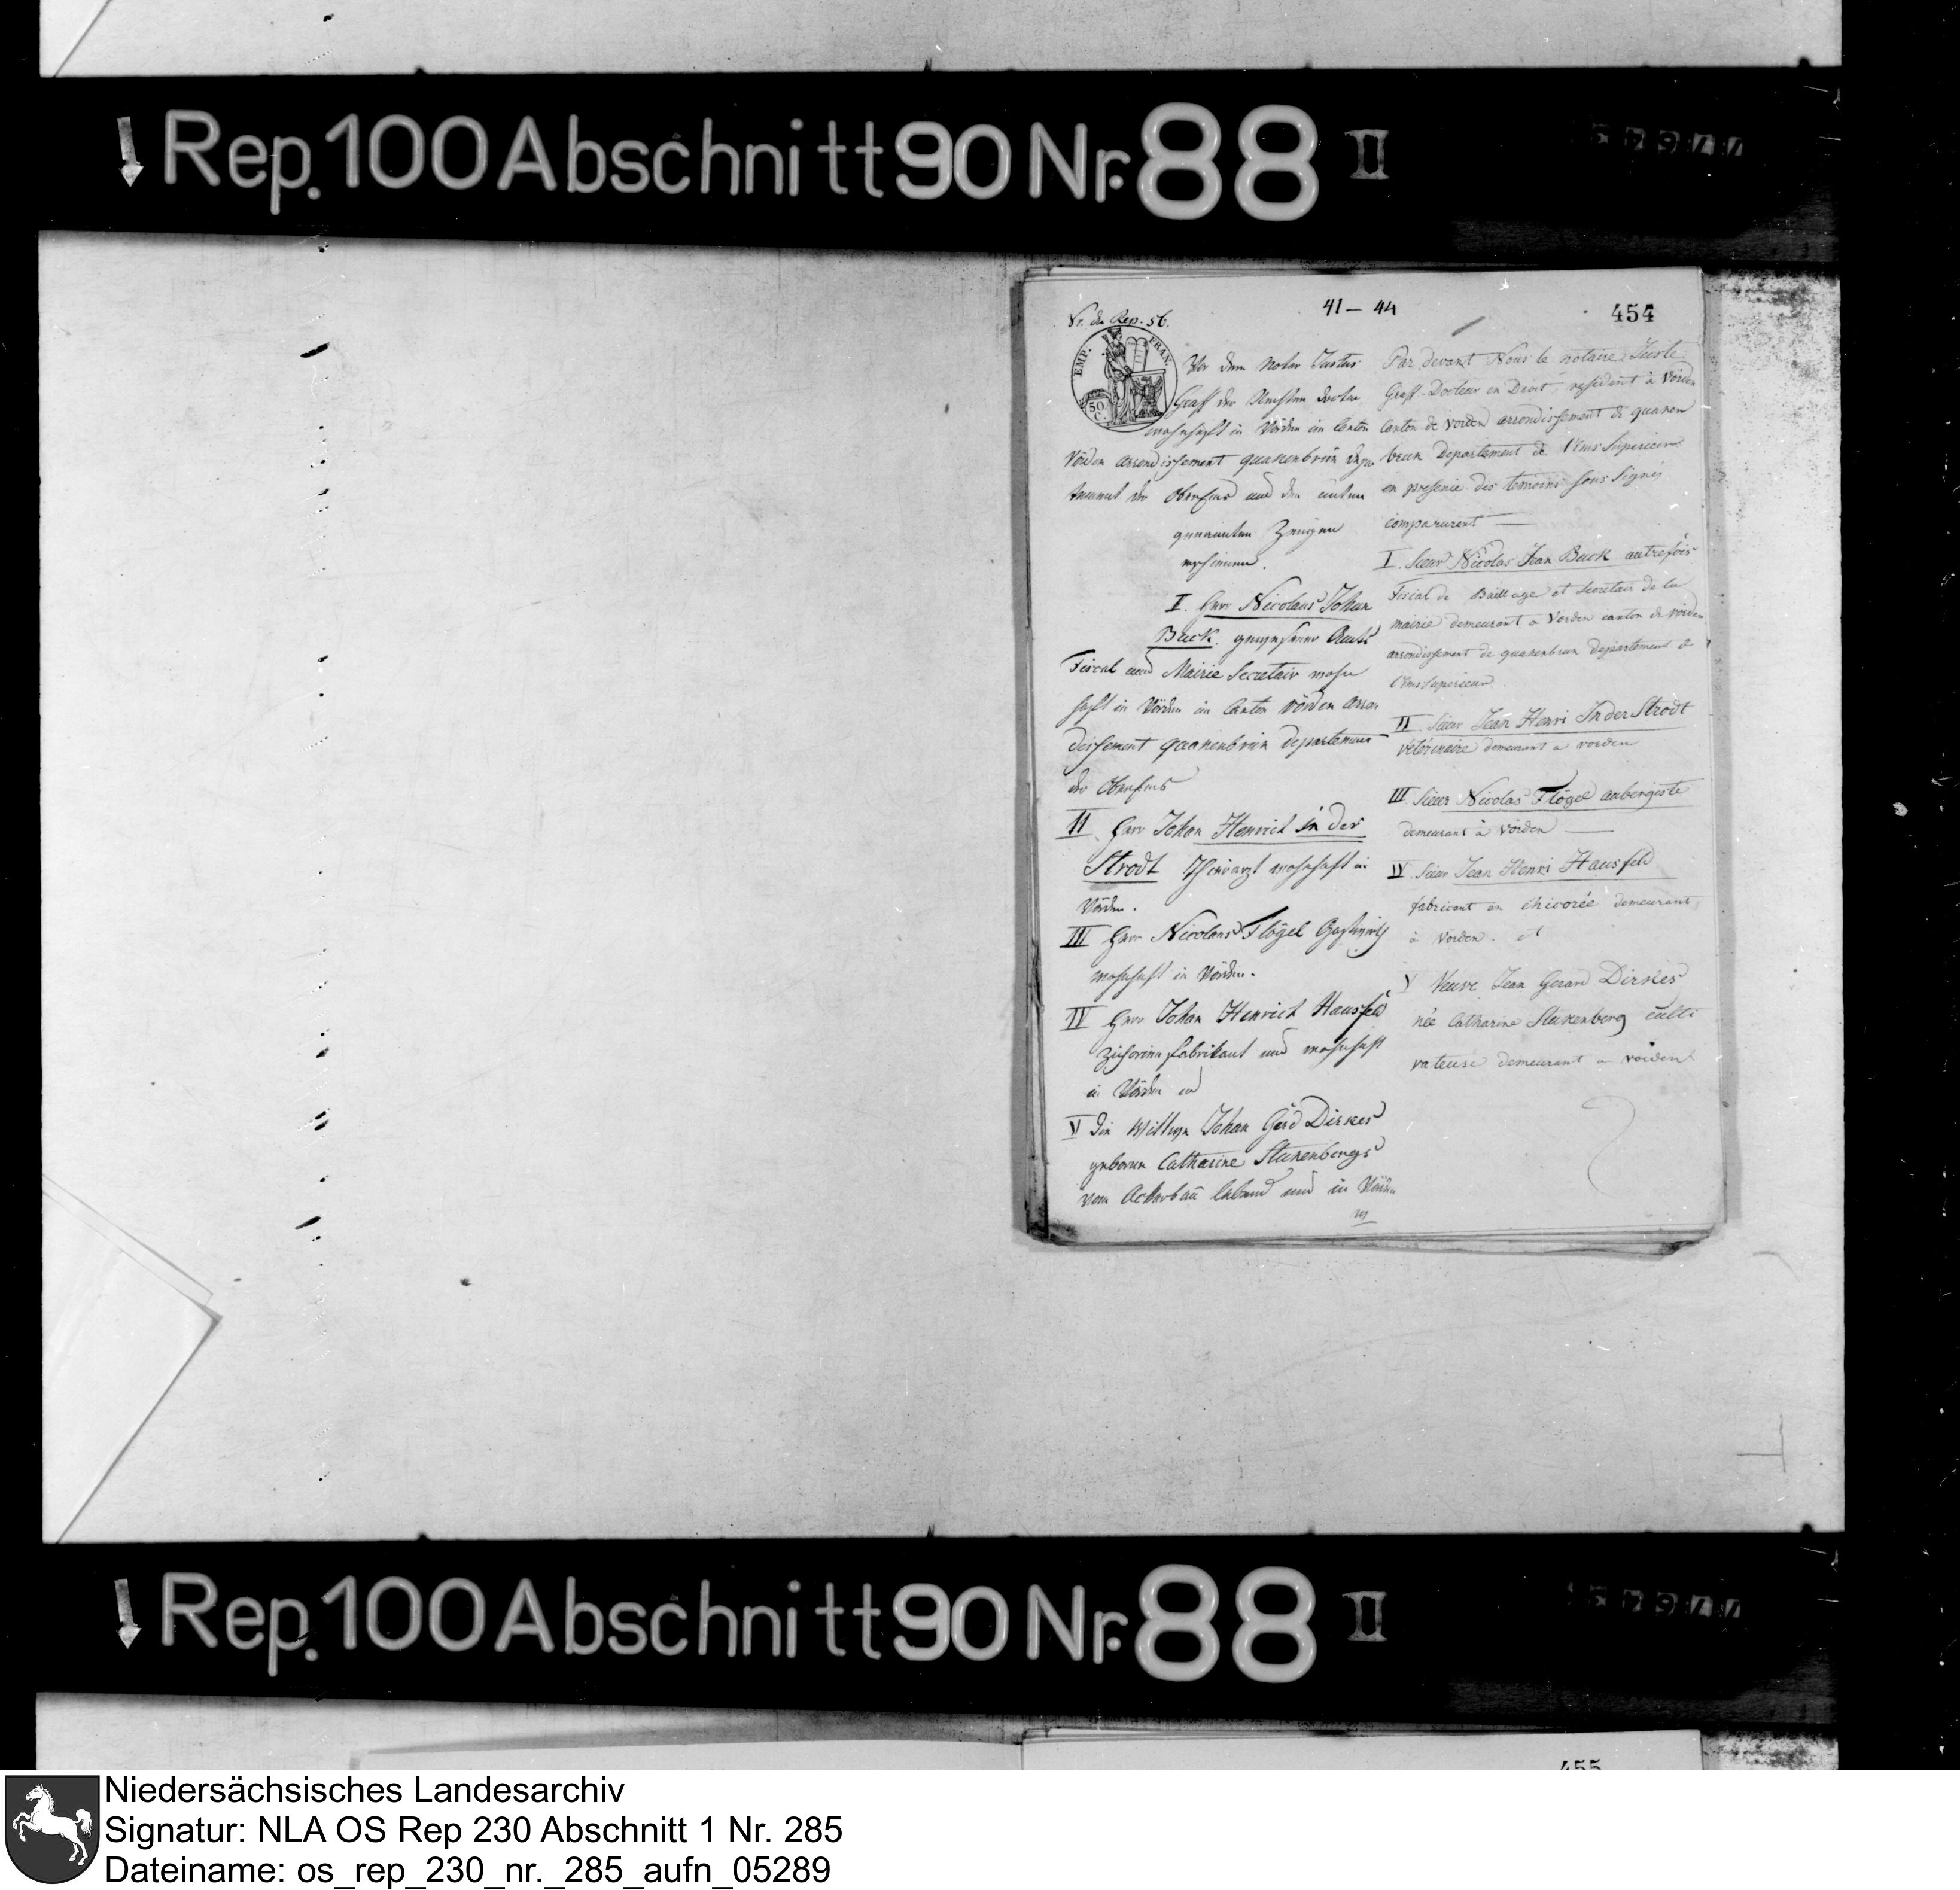 Rep. 100 Abschnitt 90 Nr. 88 II
41 – 44
454
Nr. des Rep. 56.
EMP. FRAN.
50 C.
Vor dem Notar Justus
Graff der Rechten Doctor
wohnhaft in Vörden im Canton
Vörden arrondissement quakenbrük depar
tement der Oberems und den unten
genannten Zeugen
erschienen.
I. Herr Nicolaus Johan
Buck. gewesener Amts
Fiscal und Mairie Secretair wohn
haft in Vörden im Canton Vörden arron
dissement quakenbrük departement
der Oberems
II Herr Johan Henrich in der
Strodt Thierarzt wohnhaft in
Vörden.
III Herr Nicolaus Flögel Gastwirth
wohnhaft in Vörden.
IV Herr Johan Henrich Hausfeld
Zichorienfabrikant und wohnhaft
in Vörden und
V Die Wittwe Johan Gerd Dirkes
geboren Catharine Stukenbergs
vom Ackerbau lebend und in Vörden
Par devant Nous le notaire Juste
Graff Docteur en Droit residant à Vörden
Canton de vörden arrondissement de quaken
bruk Departement de l'Ems Superieur
en presence des temoins sous signés
comparurent
I. Sieur Nicolas Jean Buck autrefois
Fiscal de Bailliage et Secretair de la
mairie demeurant a Vorden canton de vörden
arrondissement de quakenbruk departement de
l'Ems superieur.
II Sieur Jean Henri In der Strodt
vétérinaire demeurant a vorden
III. Sieur Nicolas Flögel aubergiste
demeurant à vörden
IV. Sieur Jean Henri Hausfeld
fabricant en chicorée demeurant
à Vorden. et
V Veuve Jean Gerard Dirkes
née Catharine Stukenberg culti
vateuse demeurant a vörden
Rep. 100 Abschnitt 90 Nr. 88 II
455
Niedersächsisches Landesarchiv
Signatur: NLA OS Rep 230 Abschnitt 1 Nr. 285
Dateiname: os_rep_230_nr._285_aufn_05289